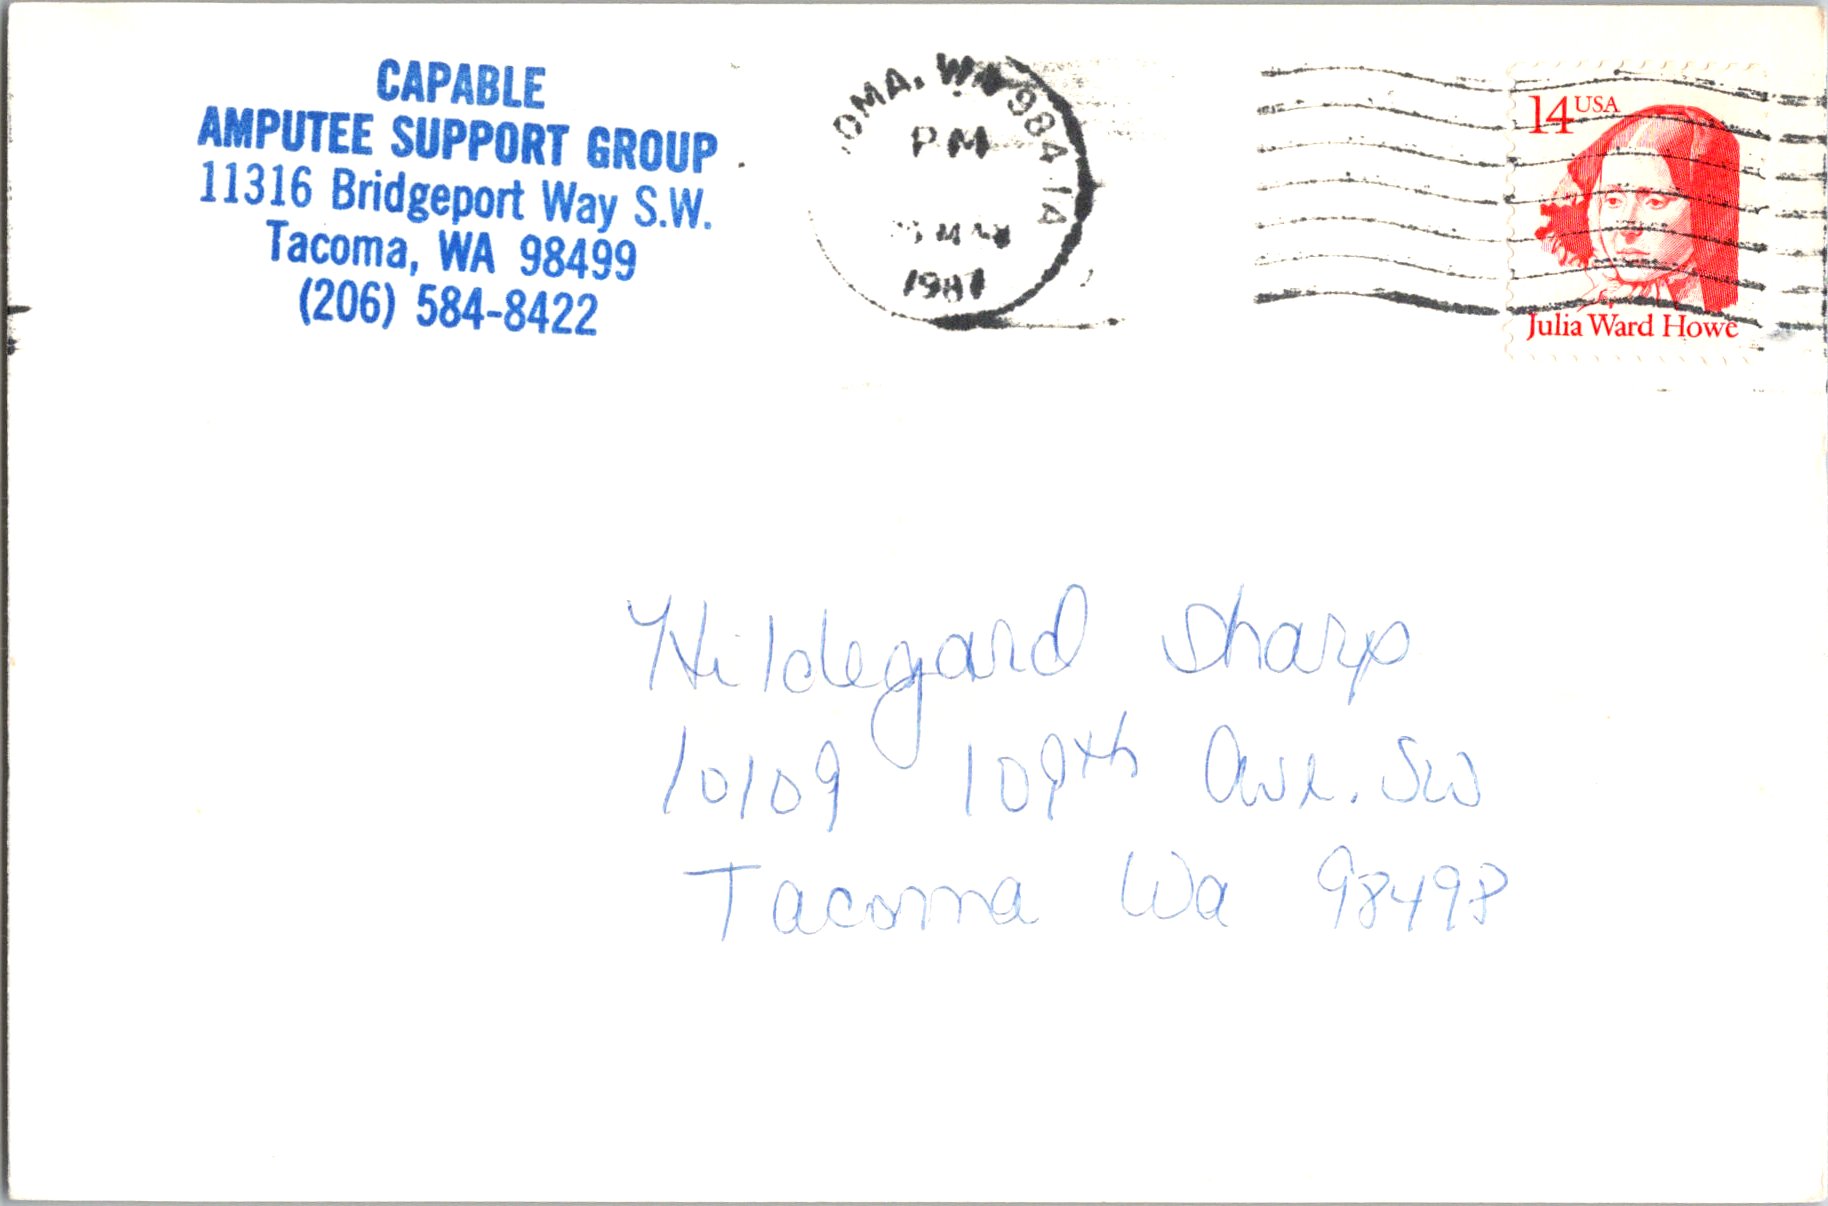 CAPABLE
AMPUTEE SUPPORT GROUP
11316 Bridgeport Way S.W.
Tacoma, WA 98499
(206) 584-8422
OMA, WA 984 1A
PM
1987
14 USA
Julia Ward Howe
Hildegard Sharp
10109 109th Ave. SW
Tacoma Wa 98498